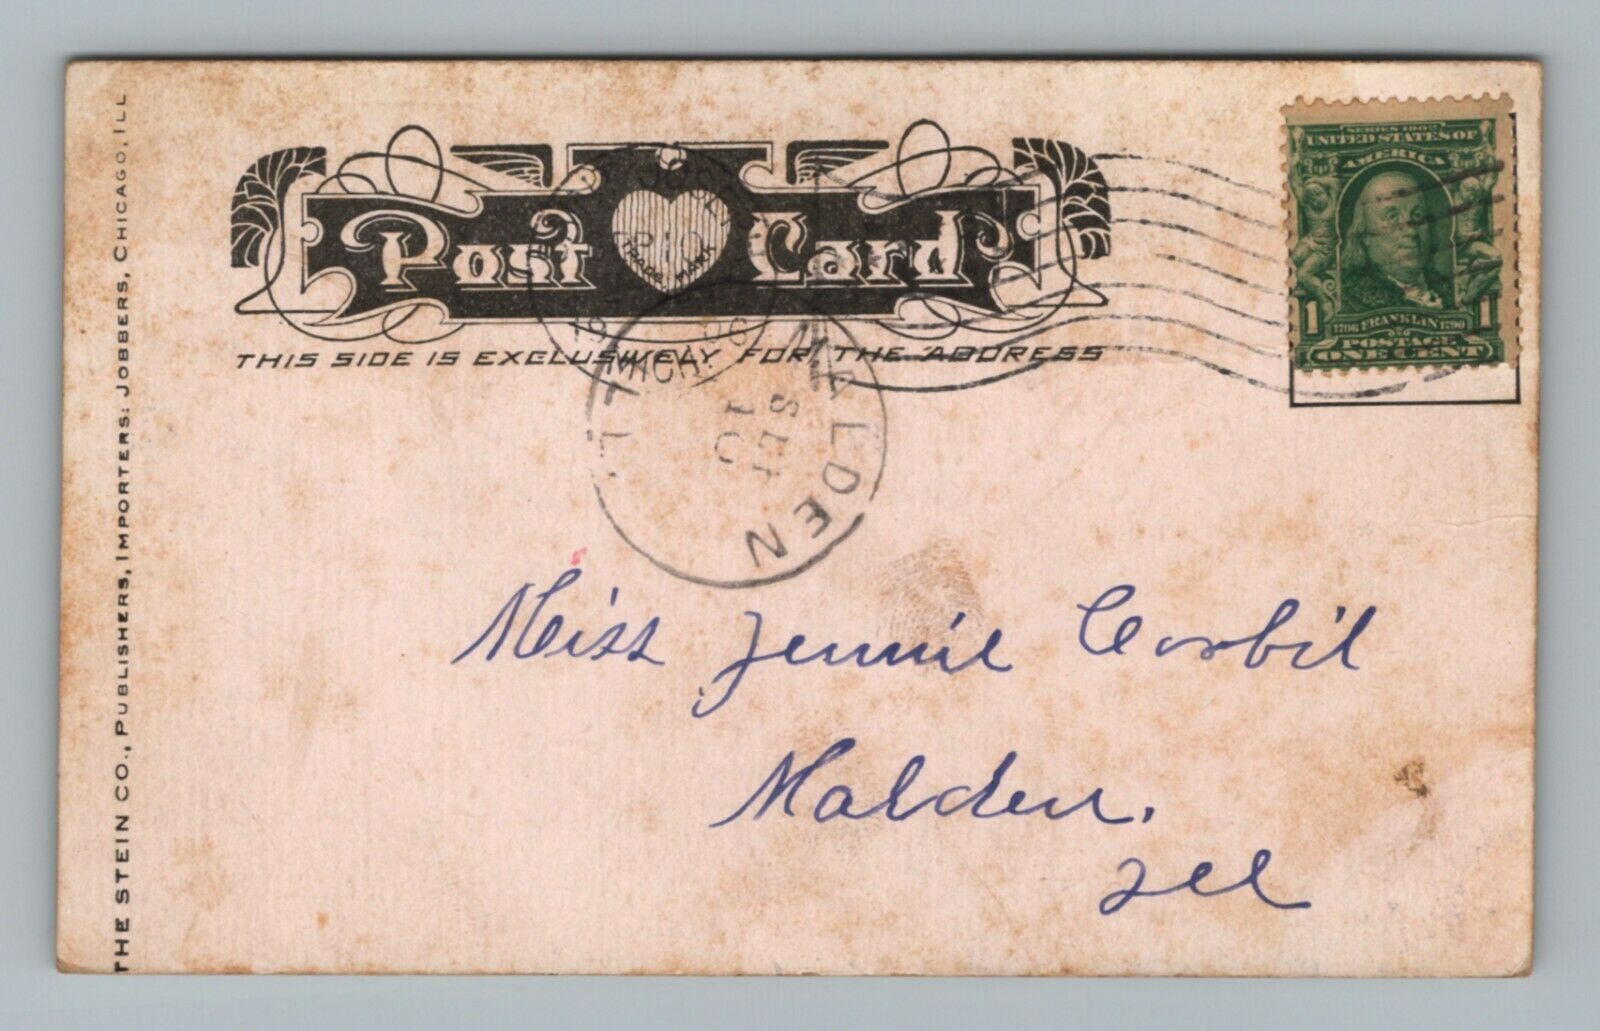 THE STEIN CO., PUBLISHERS, IMPORTERS: JOBBERS, CHICAGO, ILL
Post Card
TRADE MARK
THIS SIDE IS EXCLUSIVELY FOR THE ADDRESS
SERIES 1902
UNITED STATES OF
AMERICA
1 1706 FRANKLIN 1790 1
POSTAGE
ONE CENT
MICH.
06
MALDEN
ILL.
SEP
10
Miss Jennie Corbil
Malden.
Ill